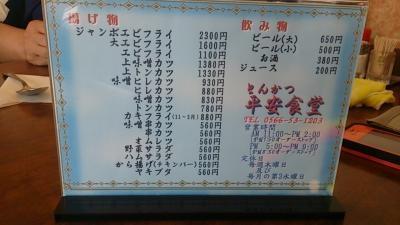 揚げ物
ジャンボエビフライ 2300円
大エビフライ 1600円
エビフライ 1100円
上味噌カツ 1380円
上トンカツ 1330円
味噌ヒレカツ 930円
ヒレカツ 880円
味噌カツ 830円
トンカツ 780円
カキフライ(11~3月) 880円
味噌串カツ 560円
串カツ 560円
オムレツ 560円
野菜サラダ 560円
ハムサラダ 560円
から揚げ(チキンバー) 560円
ヤキブタ 560円
飲み物
ビール(大) 650円
ビール(小) 500円
お酒 380円
ジュース 200円
とんかつ
平安食堂
TEL 0566-53-1203
営業時間
AM 11:00～PM 2:00
PM 5:00～PM 9:00
定休日
毎週木曜日
及び
毎月の第3水曜日